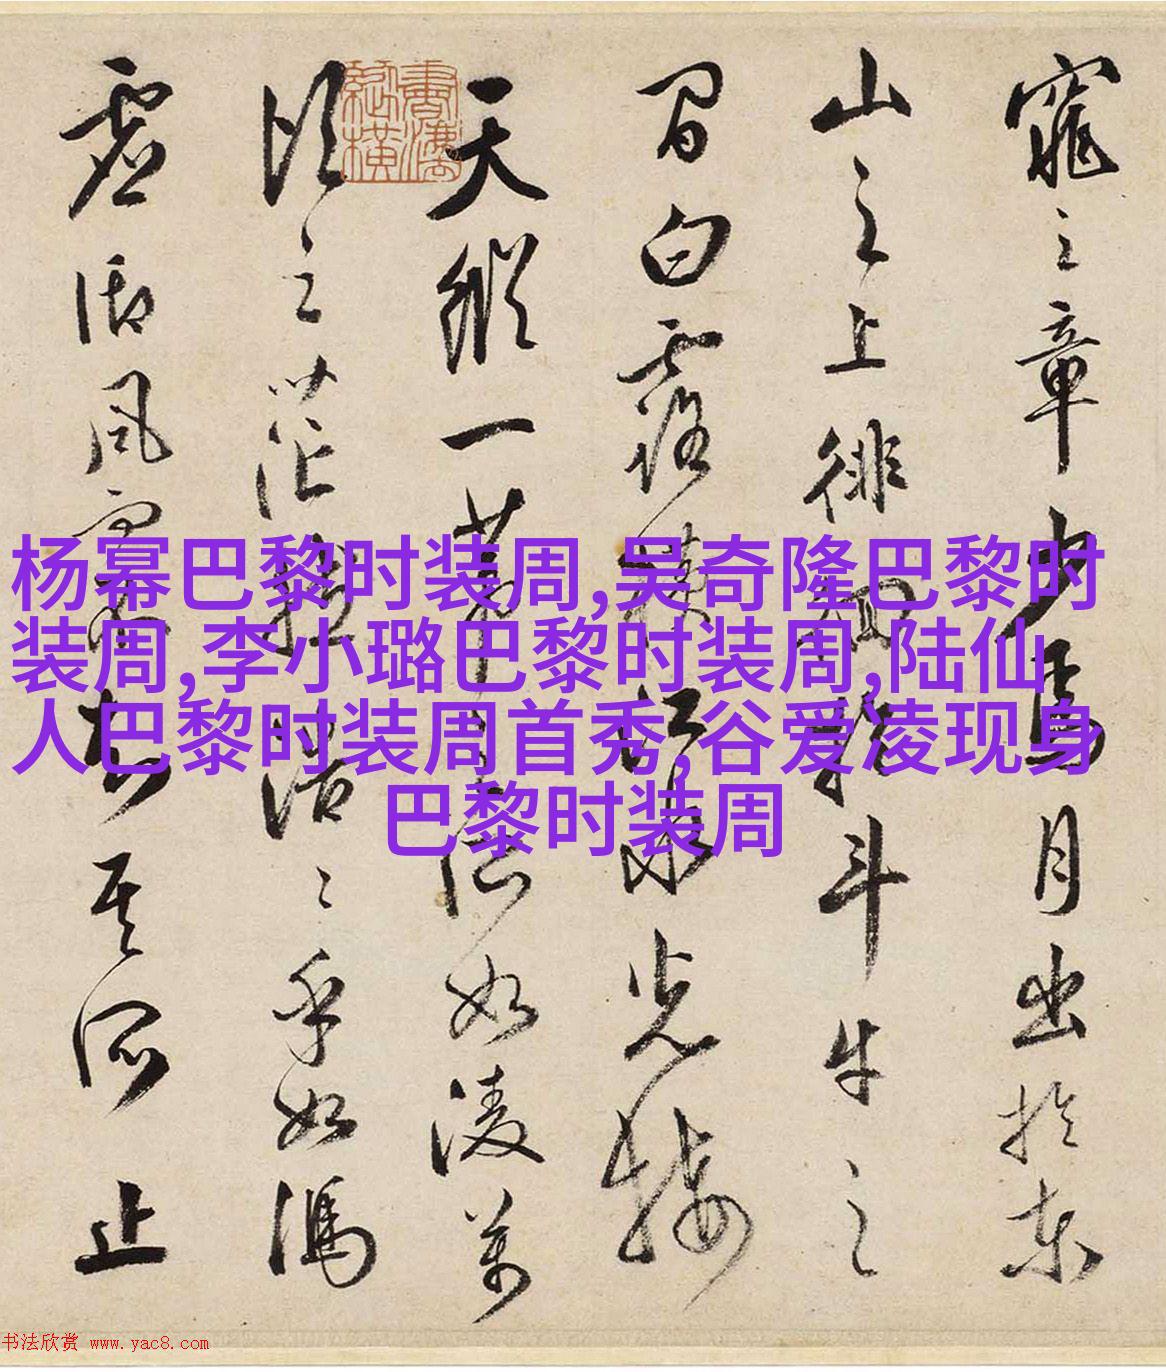 窕之章少焉月出於東
山之上徘徊於斗牛之
間白露横江水光接
天縱一葦之所如凌萬
頃之茫然浩〻乎如馮
虛御風而不知其所止
杨幂巴黎时装周,吴奇隆巴黎时
装周,李小璐巴黎时装周,陆仙
人巴黎时装周首秀,谷爱凌现身
巴黎时装周
书法欣赏 www.yac8.com